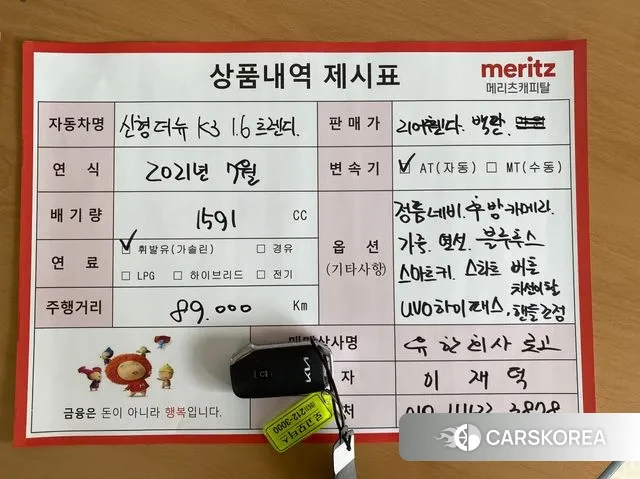 상품내역 제시표
meritz
메리츠캐피탈
자동차명 신형더뉴 K3 1.6 트렌디.
판매가 리어렌다. 백랑.
연식 2021년 7월
변속기 ✓ AT(자동) □ MT(수동)
배기량 1591 CC
옵션 (기타사항)
정품네비. 후방카메라.
가죽. 열선. 블루투스
스마트키. 스마트 버튼
차선이탈
UVO하이패스. 핸들조정
연료 ✓ 휘발유(가솔린) □ 경유
□ LPG □ 하이브리드 □ 전기
주행거리 89.000 Km
상사명 유한회사 로고
자 이재덕
처
KIA
로고모터스
212-3000
금융은 돈이 아니라 행복입니다.
CARSKOREA